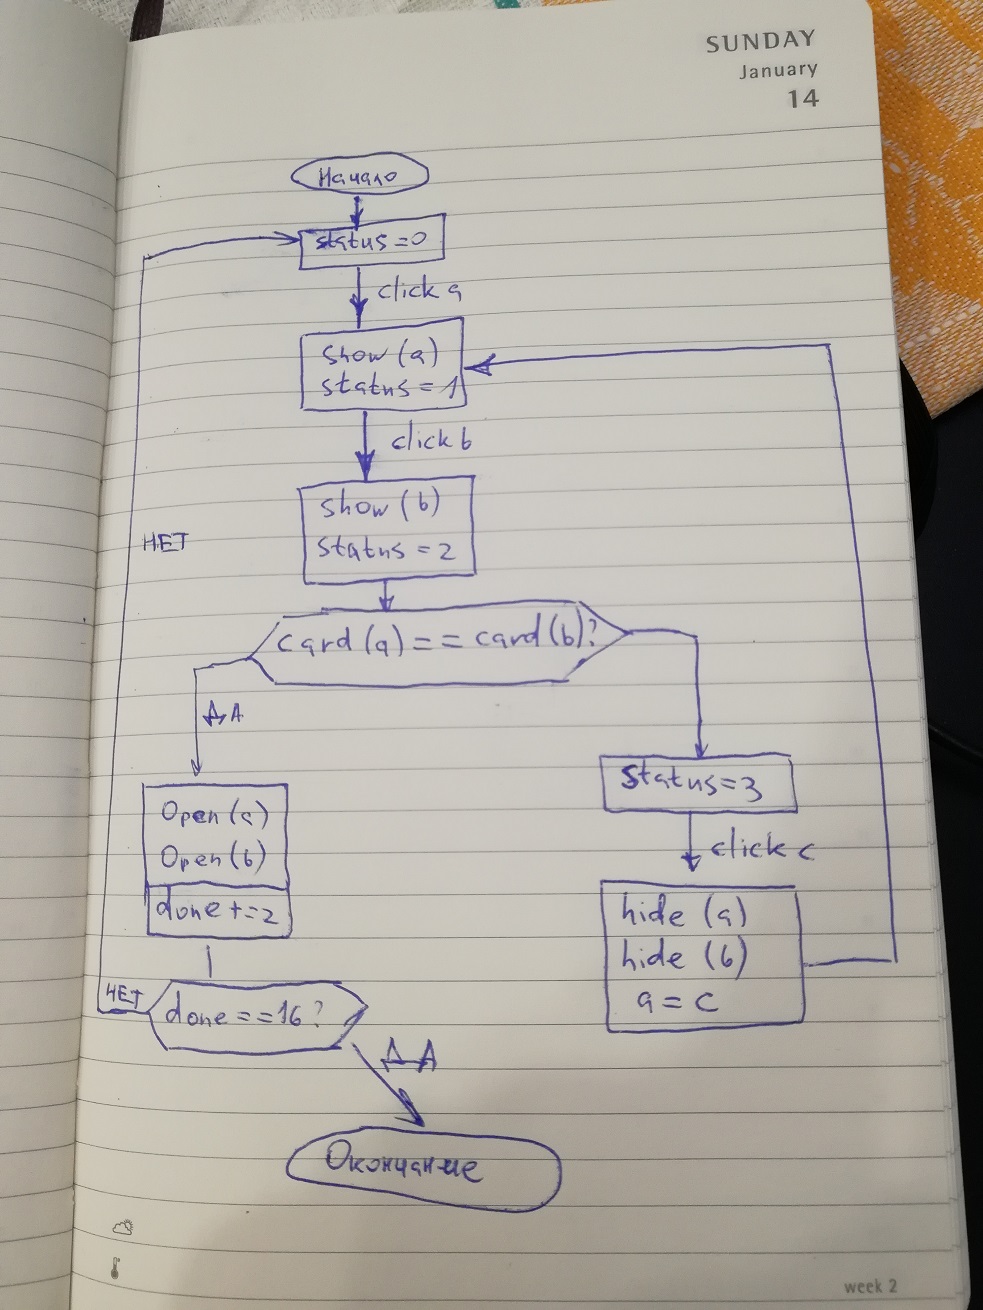 SUNDAY
January
14
Начало
status=0
click a
show (a)
status=1
click b
show (b)
status=2
НЕТ
card(a)==card(b)?
ДА
status=3
Open(a)
click c
Open(b)
done+=2
hide (a)
hide (b)
a=c
НЕТ
done==16?
ДА
Окончание
week 2